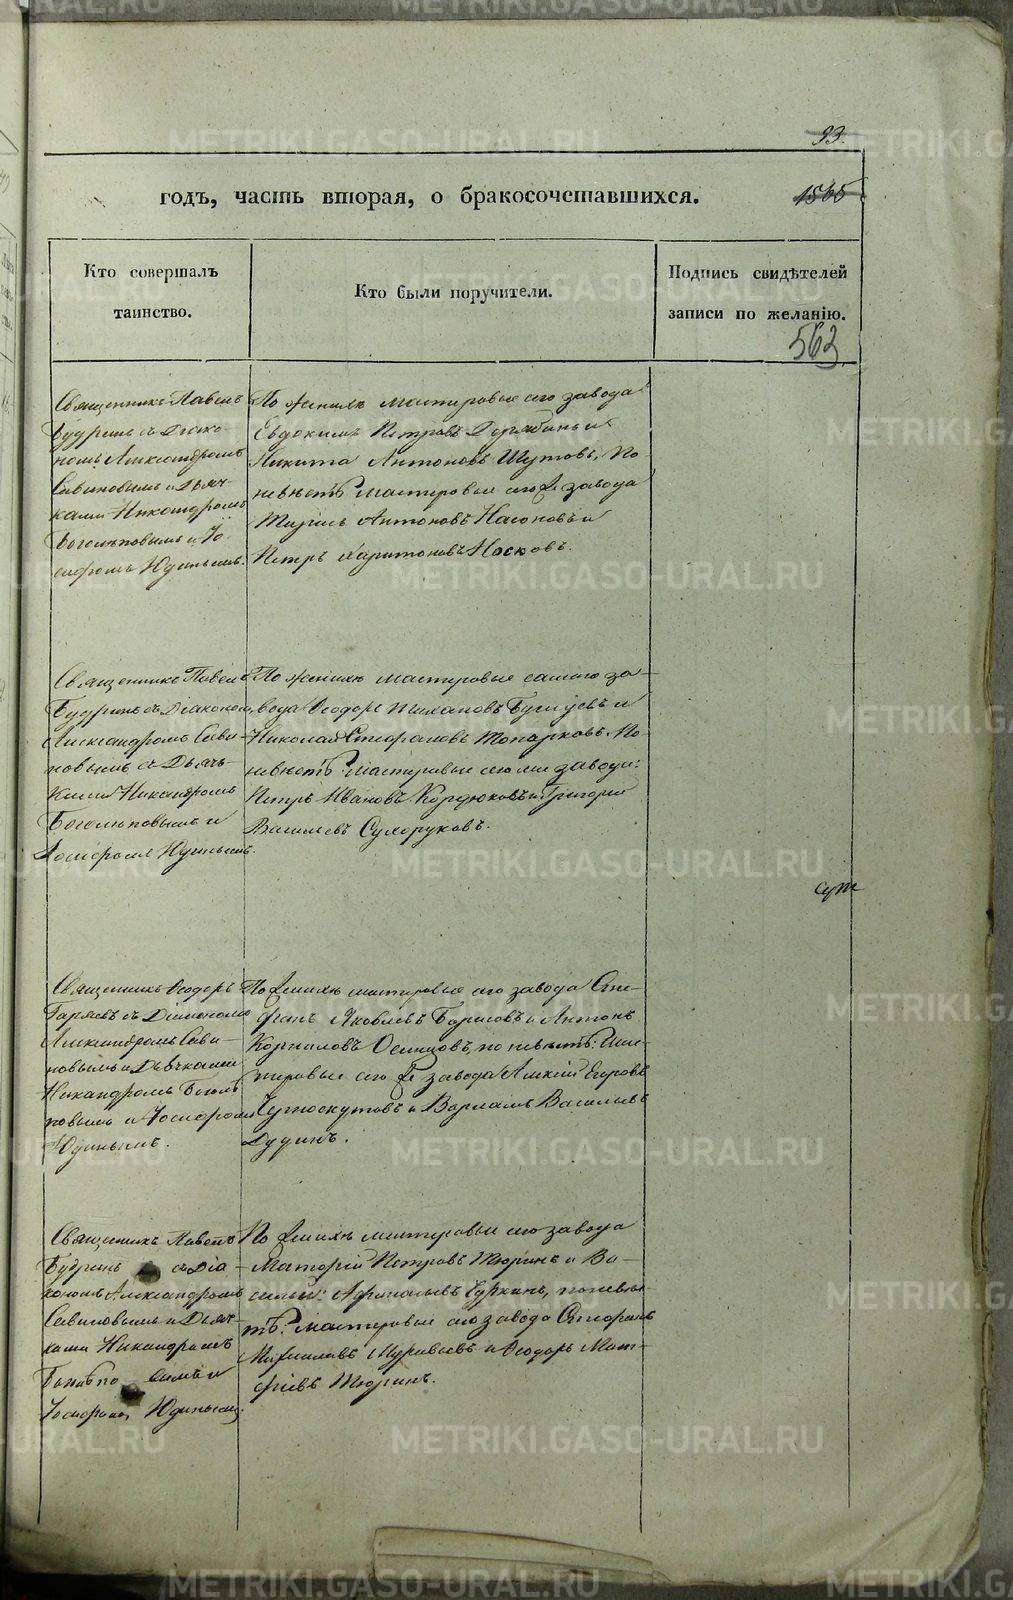 93.
годъ, часть вторая, о бракосочетавшихся.
1565
Кто совершалъ
таинство.
Кто были поручители.
Подпись свидѣтелей
записи по желанію.
562
Священникъ Павелъ
Будринъ съ Діако-
номъ Александромъ
Савиновымъ и Дьяч-
ками Никандромъ
Боголѣповымъ и Іо-
сифомъ Юдинымъ.
По женихѣ мастеровые сего завода
Евдокимъ Петровъ Дерябинъ и
Никита Антоновъ Шутовъ, По
невѣстѣ мастеровые сего же завода
Антоновъ и
Петръ Харитоновъ Носковъ.
Священникъ Павелъ
Будринъ съ Діакономъ
Александромъ Сави-
новымъ и Дьячь-
ками Никандромъ
Боголѣповымъ и
Іосифомъ Юдинымъ.
По женихѣ мастеровые сего за-
вода Ѳеодоръ и
Николай Стефановъ Топорковъ. По
невѣстѣ: мастеровые сего же завода:
Петръ Ивановъ Кордюковъ и Григорій
Васильевъ Сухоруковъ.
Священникъ Ѳеодоръ
съ Діакономъ
Александромъ Сави-
новымъ и Дьячками
Никандромъ Боголѣ-
повымъ и Іосифомъ
Юдинымъ.
По женихѣ мастеровые сего завода Сте-
фанъ Яковлевъ Борисовъ и Антонъ
Корниловъ Осинцовъ, по невѣстѣ: мас-
теровые сего же завода Алексій Егоровъ
Черноскутовъ и Варламъ Васильевъ
Дудинъ.
Священникъ Павелъ
Будринъ съ Діа-
кономъ Александромъ
Савиновымъ и Дьяч-
ками Никандромъ
Боголѣповымъ и
Іосифомъ Юдинымъ.
По женихѣ мастеровые сего завода
Матфій Петровъ Тюринъ и Ва-
силій по невѣс-
тѣ: мастеровые сего завода Стефанъ
Муравьевъ и Ѳеодоръ Мат-
фіевъ Тюринъ.
METRIKI.GASO-URAL.RU